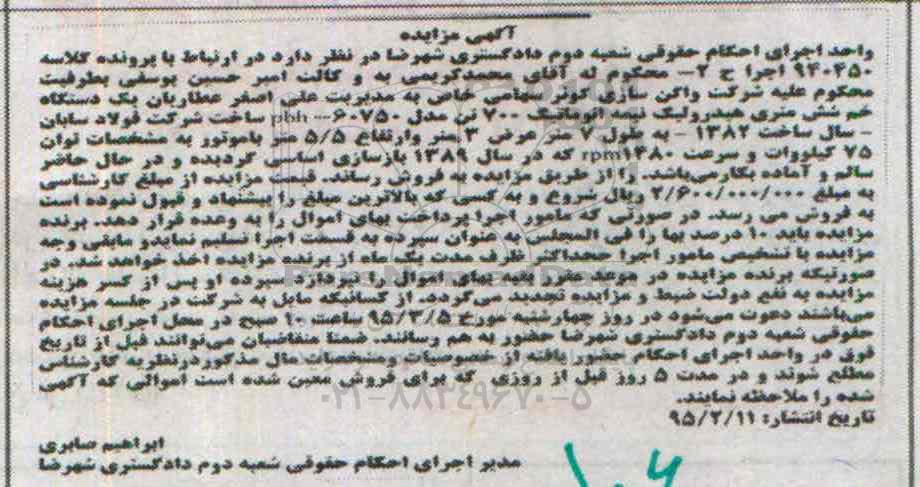 آگهی مزایده
واحد اجرای احکام حقوقی شعبه دوم دادگستری شهرضا در نظر دارد در ارتباط با پرونده کلاسه
۹۴۰۴۵۰ اجرا ح ۲- محکوم له آقای محمدکریمی به و کالت امیر حسین یوسفی بطرفیت
محکوم علیه شرکت واگن سازی کوثر سهامی خاص به مدیریت علی اصغر عطاریان یک دستگاه
خم شش متری هیدرولیک نیمه اتوماتیک ۷۰۰ تن مدل ۶۰۷۵۰-- pbh ساخت شرکت فولاد سایان
- سال ساخت ۱۳۸۲ - به طول ۷ متر عرض ۳ متر وارتفاع ۵/۵ متر باموتور به مشخصات توان
۷۵ کیلووات و سرعت rpm۱۴۸۰ که در سال ۱۳۸۹ بازسازی اساسی گردیده و در حال حاضر
سالم و آماده بکارمی‌باشد. را از طریق مزایده به فروش رساند. قیمت مزایده از مبلغ کارشناسی
به مبلغ ۲/۶۰۰/۰۰۰/۰۰۰ ریال شروع و به کسی که بالاترین مبلغ را پیشنهاد و قبول نموده است
به فروش می رسد. در صورتی که مامور اجرا پرداخت بهای اموال را به وعده قرار دهد. برنده
مزایده باید ۱۰ درصد بها را فی المجلس به عنوان سپرده به قسمت اجرا تسلیم نمایدو مابقی وجه
مزایده با تشخیص مامور اجرا حداکثر ظرف مدت یک ماه از برنده مزایده اخذ خواهد شد. در
صورتیکه برنده مزایده در موعد مقرر بقیه بهای اموال را نپردازد سپرده او پس از کسر هزینه
مزایده به نفع دولت ضبط و مزایده تجدید می‌گردد. از کسانیکه مایل به شرکت در جلسه مزایده
می‌باشند دعوت می‌شود در روز چهارشنبه مورخ ۹۵/۳/۵ ساعت ۱۰ صبح در محل اجرای احکام
حقوقی شعبه دوم دادگستری شهرضا حضور به هم رسانند. ضمنا متقاضیان می‌توانند قبل از تاریخ
فوق در واحد اجرای احکام حضور یافته از خصوصیات ومشخصات مال مذکوردرنظریه کارشناس
مطلع شوند و در مدت ۵ روز قبل از روزی که برای فروش معین شده است اموالی که آگهی
شده را ملاحظه نمایند.
۰۲۱-۸۸۳۴۹۶۷۰-۵
تاریخ انتشار: ۹۵/۲/۱۱
ابراهیم صابری
مدیر اجرای احکام حقوقی شعبه دوم دادگستری شهرضا